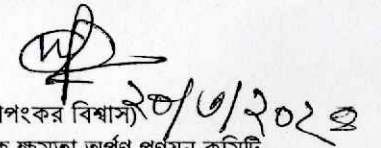 পংকর বিশ্বাস) ২০/৬/২০২৪
ক্ষমতা অর্পণ প্রণয়ন কমিটি